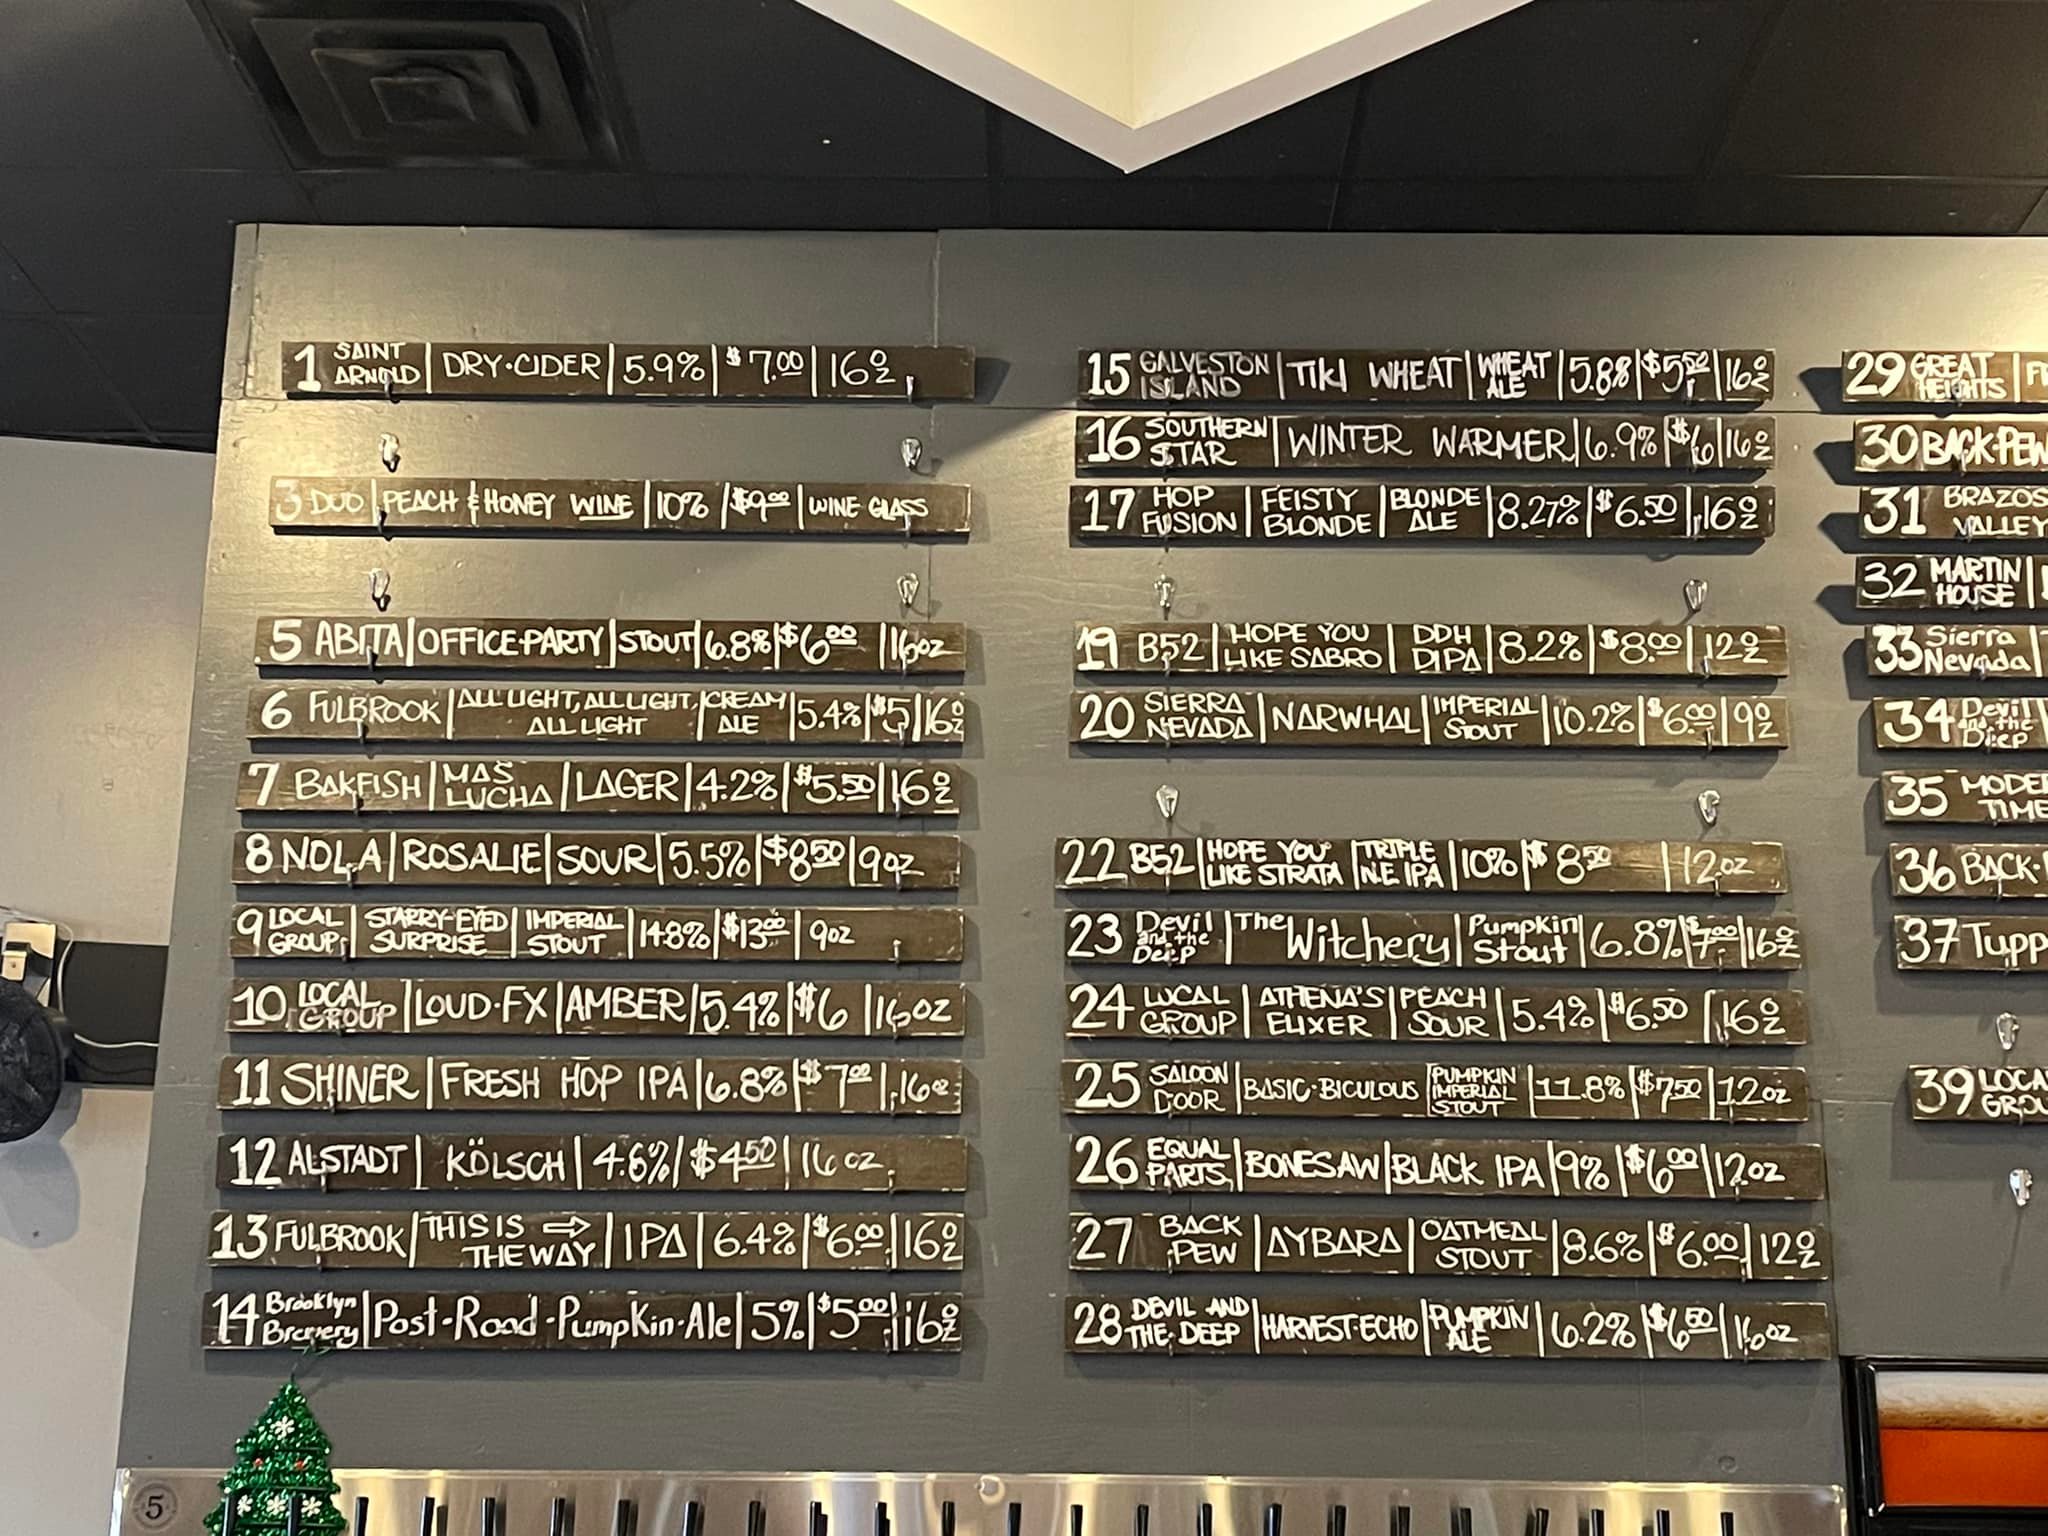 1 SAINT ARNOLD | DRY·CIDER | 5.9% | $7.00 | 16oz
3 DUO | PEACH & HONEY WINE | 10% | $9.00 | WINE GLASS
5 ABITA | OFFICE·PARTY | STOUT | 6.8% | $6.00 | 16oz
6 FULBROOK | ALL LIGHT, ALL LIGHT, ALL LIGHT | CREAM ALE | 5.4% | $5 | 16oz
7 BAKFISH | MAS LUCHA | LAGER | 4.2% | $5.50 | 16oz
8 NOLA | ROSALIE | SOUR | 5.5% | $8.50 | 9oz
9 LOCAL GROUP | STARRY-EYED SURPRISE | IMPERIAL STOUT | 14.8% | $13.00 | 9oz
10 LOCAL GROUP | LOUD·FX | AMBER | 5.4% | $6 | 16oz
11 SHINER | FRESH HOP IPA | 6.8% | $7.00 | 16oz
12 ALSTADT | KÖLSCH | 4.6% | $4.50 | 16oz
13 FULBROOK | THIS IS ⇒ THE WAY | IPA | 6.4% | $6.00 | 16oz
14 Brooklyn Brewery | Post-Road-Pumpkin-Ale | 5% | $5.00 | 16oz
15 GALVESTON ISLAND | TIKI WHEAT | WHEAT ALE | 5.8% | $5.50 | 16oz
16 SOUTHERN STAR | WINTER WARMER | 6.9% | $6 | 16oz
17 HOP FUSION | FEISTY BLONDE | BLONDE ALE | 8.27% | $6.50 | 16oz
19 B52 | HOPE YOU LIKE SABRO | DDH DIPA | 8.2% | $8.00 | 12oz
20 SIERRA NEVADA | NARWHAL | IMPERIAL STOUT | 10.2% | $6.00 | 9oz
22 B52 | HOPE YOU LIKE STRATA | TRIPLE N.E IPA | 10% | $8.50 | 12oz
23 Devil and the Deep | The Witchery | Pumpkin Stout | 6.8% | $7.00 | 16oz
24 LOCAL GROUP | ATHENA'S ELIXER | PEACH SOUR | 5.4% | $6.50 | 16oz
25 SALOON DOOR | BASIC·BICULOUS | PUMPKIN IMPERIAL STOUT | 11.8% | $7.50 | 12oz
26 EQUAL PARTS | BONESAW | BLACK IPA | 9% | $6.00 | 12oz
27 BACK PEW | AYBARA | OATMEAL STOUT | 8.6% | $6.00 | 12oz
28 DEVIL AND THE DEEP | HARVEST·ECHO | PUMPKIN ALE | 6.2% | $6.50 | 16oz
29 GREAT HEIGHTS |
30 BACK·PEW
31 BRAZOS VALLEY
32 MARTIN HOUSE |
33 Sierra Nevada |
34 Devil and the Deep |
35 TIME
36 BACK·
37
39
5